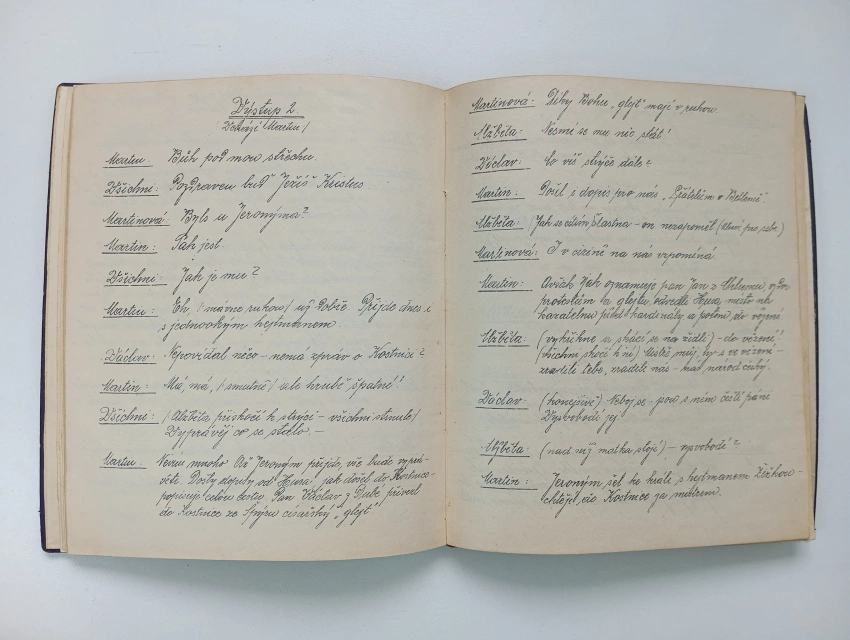 Výstup 2.
/Vchází Martin/
Martin: Bůh pod mou střechu.
Všichni: Pozdraven buď Ježíš Kristus
Martinová: Byls u Jeronýma?
Martin: Tak jest.
Všichni: Jak je mu?
Martin: Eh, /mávne rukou/ už dobře. Přijde dnes i
s jednookým hejtmanem.
Václav: Nepovídal něco – nemá zpráv o Kostnici?
Martin: Má, má, /smutně/ ale hrubě špatné!
Všichni: /Alžběta přiskočí k strýci – všichni strnule/
Vyprávěj co se stalo. –
Martin: Nevím mnoho. Až Jeroným přijde, vše bude vyprá-
věti. Došly dopisy od Husa jak došel do Kostnice-
popisuje celou cestu. Pan Václav z Dubé přivezl
do Kostnice ze Spýru císařský „glejt“
Martinová: Díky Bohu „glejt“ mají v rukou.
Alžběta: Nesmí se mu nic stát!
Václav: Co víš strýče dále?
Martin: Došel s dopis pro nás „Přátelům v Betlémě“
Alžběta: Jak se cítím šťastna – on nezapoměl (tlumí pro sebe)
Martinová: I v cizině na nás vzpomíná.
Martin: Avšak jak oznamuje pan Jan z Chlumu,
protestům ke glejtu, odvedli Husa, místo na
kazatelnu před kardinály a potom do vězení
Alžběta: (vykřikne a skácí se na židli) – do vězení!
(všichni skočí k ní) Mistře můj, ty – ve vězení –
zradili tebe, zradili nás – náš národ český.
Václav: (konejšivě) Neboj se – jsou s ním čeští páni
Vysvobodí jej
Alžběta: (nad níž matka stojí) – vysvobodí?
Martin: Jeroným šel ke králi s hejtmanem Žižkou –
chtějí do Kostnice za mistrem.